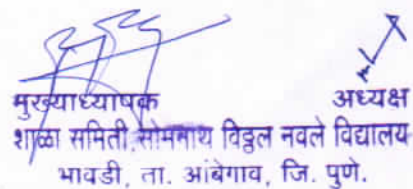 मुख्याध्यापक अध्यक्ष
शाळा समिती सोमनाथ विठ्ठल नवले विद्यालय
भावडी, ता. आंबेगाव, जि. पुणे.